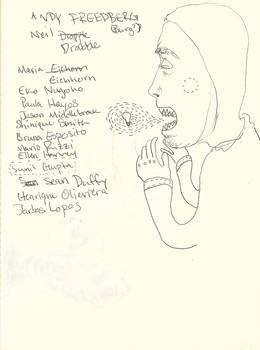 ANDY FREEDBERG
(Burg?)
Neil Droppe
Drabble
Maria Eichorn
Eichhorn
Eko Nugroho
Paula Hayes
Jason Middlebrook
Shinique Smith
Bruna Esposito
Mario Rizzi
Ellen Harvey
Sunil Gupta
Sean Duffy
Henrique Oliveira
Jarbas Lopes